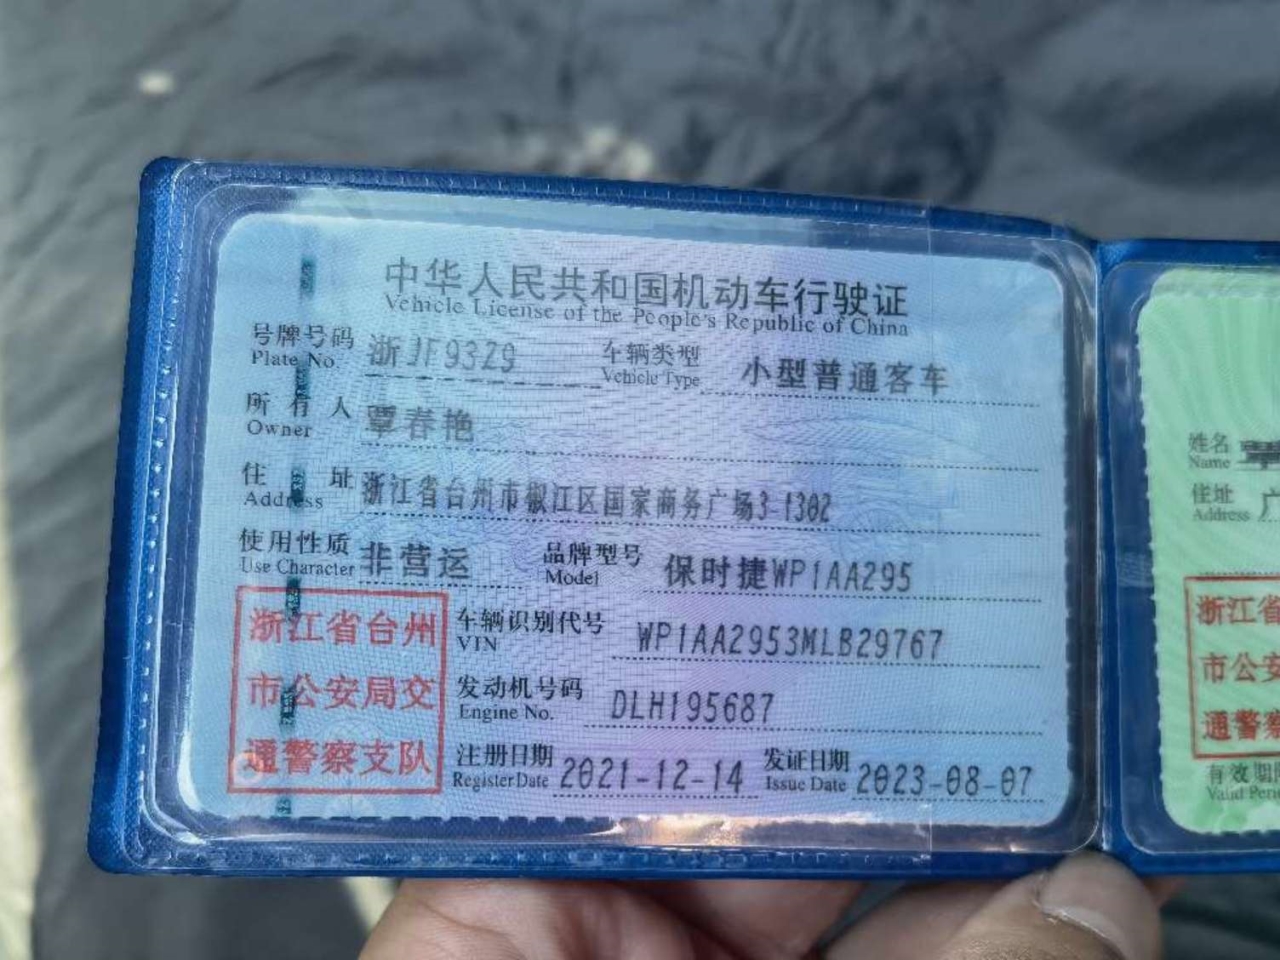 中华人民共和国机动车行驶证
Vehicle License of the People's Republic of China
号牌号码 浙JF93Z9 车辆类型 小型普通客车
Plate No. Vehicle Type
所有人 覃春艳
Owner
住址 浙江省台州市椒江区国家商务广场3-1302
Address
使用性质 非营运 品牌型号 保时捷WP1AA295
Use Character Model
浙江省台州
市公安局交
通警察支队
车辆识别代号 WP1AA2953MLB29767
VIN
发动机号码 DLH195687
Engine No.
注册日期 2021-12-14 发证日期 2023-08-07
Register Date Issue Date
姓名
Name
住址 广
Address
浙江省
市公安
通警察
有效期限
Valid